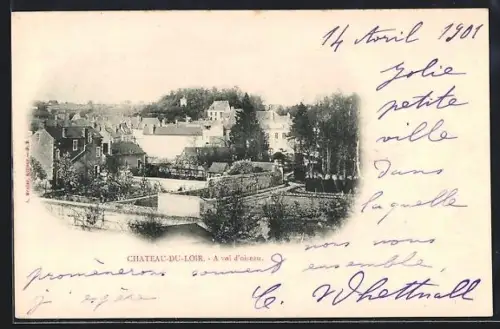 14 Avril 1901
Jolie
petite
ville
dans
laquelle
nous nous
CHATEAU-DU-LOIR. - A vol d'oiseau.
promènerons souvent ensemble,
j'espère C. Whettnall